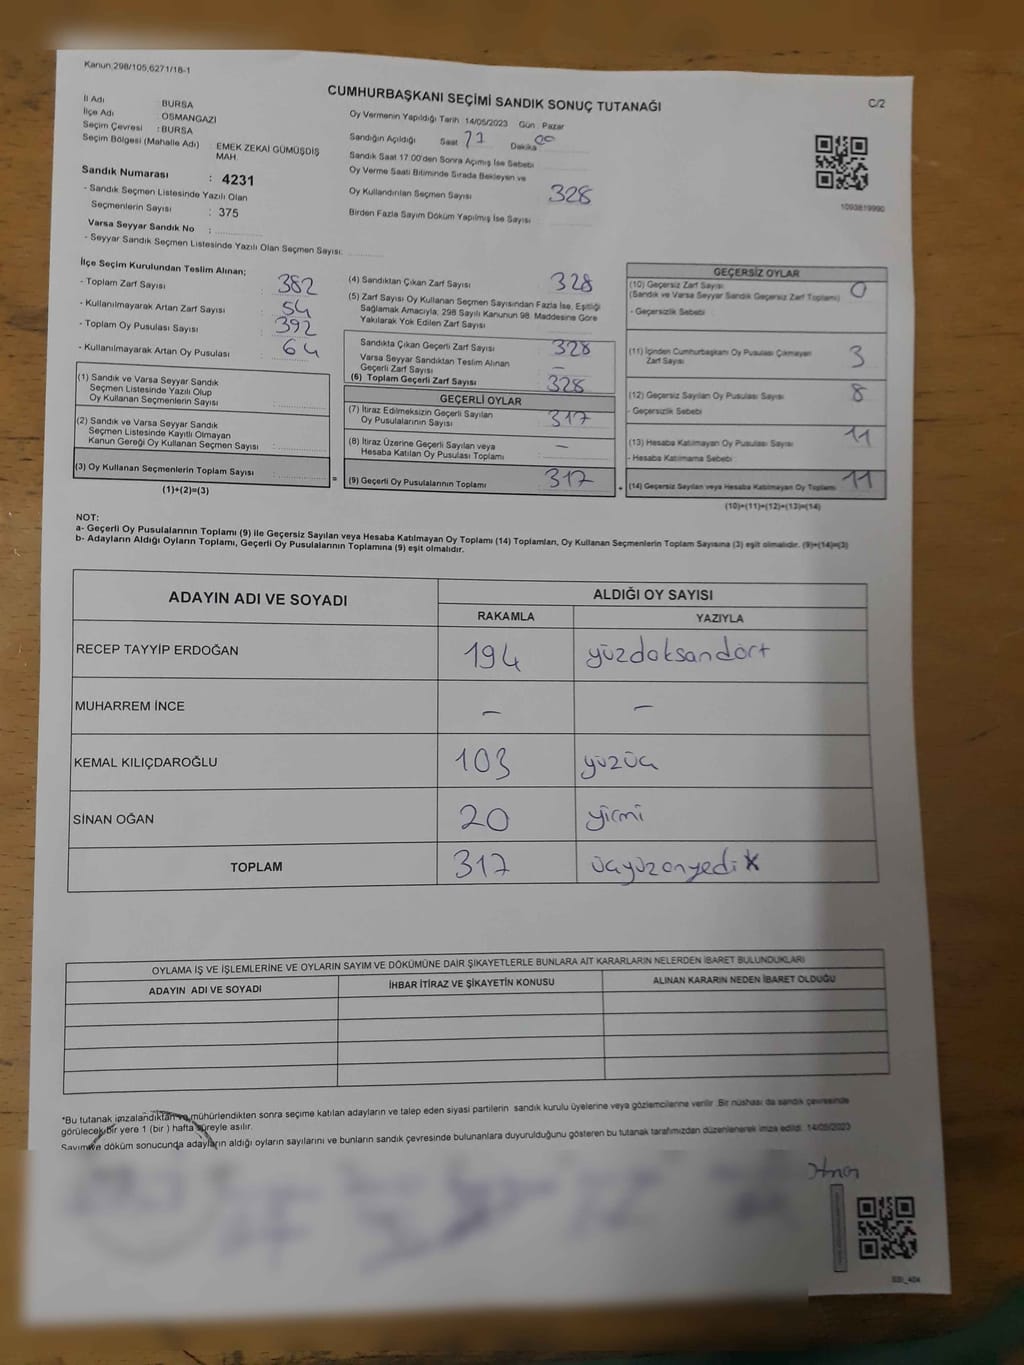 Kanun,298/105,6271/18-1
CUMHURBAŞKANI SEÇİMİ SANDIK SONUÇ TUTANAĞI
C/2
İl Adı BURSA
İlçe Adı OSMANGAZİ
Seçim Çevresi : BURSA
Seçim Bölgesi (Mahalle Adı) : EMEK ZEKAİ GÜMÜŞDİŞ MAH.
Sandık Numarası : 4231
- Sandık Seçmen Listesinde Yazılı Olan
Seçmenlerin Sayısı : 375
Varsa Seyyar Sandık No :
- Seyyar Sandık Seçmen Listesinde Yazılı Olan Seçmen Sayısı:
Oy Vermenin Yapıldığı Tarih 14/05/2023 Gün : Pazar
Sandığın Açıldığı Saat Dakika 00
Sandık Saat 17:00'den Sonra Açımış İse Sebebi
Oy Verme Saati Bitiminde Sırada Bekleyen ve
Oy Kullandırılan Seçmen Sayısı 328
Birden Fazla Sayım Döküm Yapılmış İse Sayısı
1093819990
İlçe Seçim Kurulundan Teslim Alınan;
- Toplam Zarf Sayısı : 382
- Kullanılmayarak Artan Zarf Sayısı : 54
- Toplam Oy Pusulası Sayısı : 392
- Kullanılmayarak Artan Oy Pusulası : 64
(1) Sandık ve Varsa Seyyar Sandık
Seçmen Listesinde Yazılı Olup
Oy Kullanan Seçmenlerin Sayısı :
(2) Sandık ve Varsa Seyyar Sandık
Seçmen Listesinde Kayıtlı Olmayan
Kanun Gereği Oy Kullanan Seçmen Sayısı :
(3) Oy Kullanan Seçmenlerin Toplam Sayısı :
(1)+(2)=(3)
(4) Sandıktan Çıkan Zarf Sayısı 328
(5) Zarf Sayısı Oy Kullanan Seçmen Sayısından Fazla İse, Eşitliği
Sağlamak Amacıyla, 298 Sayılı Kanunun 98. Maddesine Göre
Yakılarak Yok Edilen Zarf Sayısı
Sandıkta Çıkan Geçerli Zarf Sayısı 328
Varsa Seyyar Sandıktan Teslim Alınan
Geçerli Zarf Sayısı : –
(6) Toplam Geçerli Zarf Sayısı 328
GEÇERLİ OYLAR
(7) İtiraz Edilmeksizin Geçerli Sayılan
Oy Pusulalarının Sayısı : 317
(8) İtiraz Üzerine Geçerli Sayılan veya
Hesaba Katılan Oy Pusulası Toplamı : –
(9) Geçerli Oy Pusulalarının Toplamı 317
GEÇERSİZ OYLAR
(10) Geçersiz Zarf Sayısı 0
(Sandık ve Varsa Seyyar Sandık Geçersiz Zarf Toplamı)
- Geçersizlik Sebebi
(11) İçinden Cumhurbaşkanı Oy Pusulası Çıkmayan
Zarf Sayısı 3
(12) Geçersiz Sayılan Oy Pusulası Sayısı 8
- Geçersizlik Sebebi
(13) Hesaba Katılmayan Oy Pusulası Sayısı 11
- Hesaba Katılmama Sebebi :
(14) Geçersiz Sayılan veya Hesaba Katılmayan Oy Toplamı 11
(10)+(11)+(12)+(13)=(14)
NOT:
a- Geçerli Oy Pusulalarının Toplamı (9) ile Geçersiz Sayılan veya Hesaba Katılmayan Oy Toplamı (14) Toplamları, Oy Kullanan Seçmenlerin Toplam Sayısına (3) eşit olmalıdır. (9)+(14)=(3)
b- Adayların Aldığı Oyların Toplamı, Geçerli Oy Pusulalarının Toplamına (9) eşit olmalıdır.
ADAYIN ADI VE SOYADI
ALDIĞI OY SAYISI
RAKAMLA YAZIYLA
RECEP TAYYİP ERDOĞAN 194 yüzdoksandört
MUHARREM İNCE – –
KEMAL KILIÇDAROĞLU 103 yüzüç
SİNAN OĞAN 20 yirmi
TOPLAM 317 üçyüzonyedi
OYLAMA İŞ VE İŞLEMLERİNE VE OYLARIN SAYIM VE DÖKÜMÜNE DAİR ŞİKAYETLERLE BUNLARA AİT KARARLARIN NELERDEN İBARET BULUNDUKLARI
ADAYIN ADI VE SOYADI İHBAR İTİRAZ VE ŞİKAYETİN KONUSU ALINAN KARARIN NEDEN İBARET OLDUĞU
*Bu tutanak imzalandıktan ve mühürlendikten sonra seçime katılan adayların ve talep eden siyasi partilerin sandık kurulu üyelerine veya gözlemcilerine verilir. Bir nüshası da sandık çevresinde
görülecek bir yere 1 (bir ) hafta süreyle asılır.
Sayım ve döküm sonucunda adayların aldığı oyların sayılarını ve bunların sandık çevresinde bulunanlara duyurulduğunu gösteren bu tutanak tarafımızdan düzenlenerek imza edildi. 14/05/2023